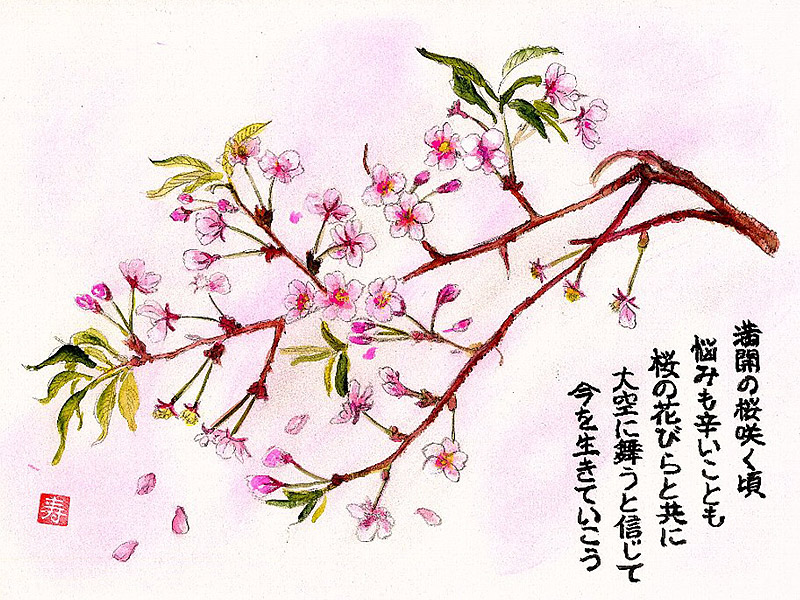 満開の桜咲く頃
悩みも辛いことも
桜の花びらと共に
大空に舞うと信じて
今を生きていこう
寿